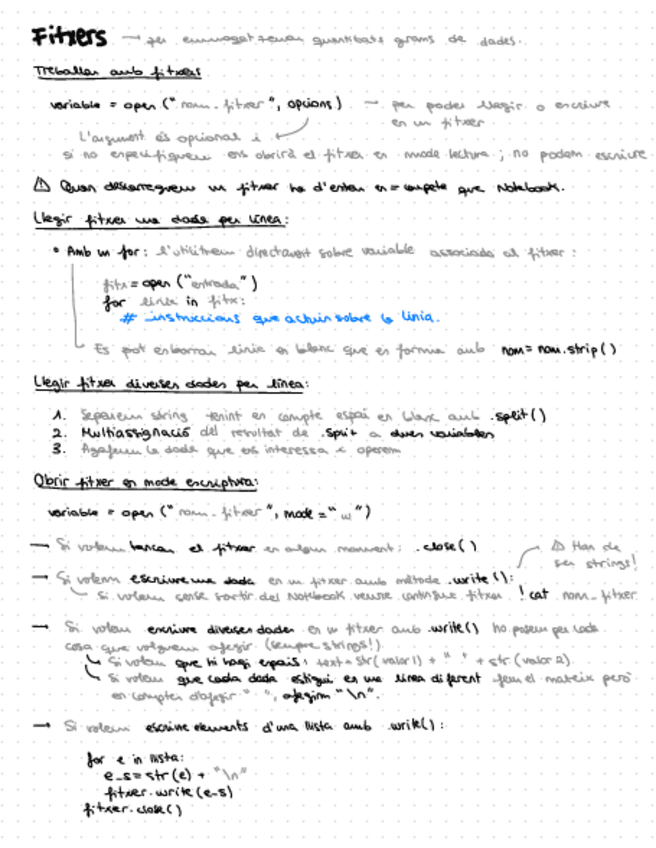 Fitxers → per emmagatzemar quantitats grans de dades.
Treballar amb fitxers
variable = open ("nom_fitxer", opcions) → per poder llegir o escriure
en un fitxer
L'argument és opcional i
si no especifiquem ens obrirà el fitxer en mode lectura; no podem escriure
⚠ Quan descarreguem un fitxer ha d'estar en = carpeta que Notebook.
Llegir fitxer una dada per línea:
• Amb un for: l'utilitzem directament sobre variable associada al fitxer:
fitx = open ("entrada")
for linea in fitx:
# instruccions que actuin sobre la línia.
Es pot esborrar línia en blanc que es forma amb nom = nom.strip()
Llegir fitxer diverses dades per línea:
1. Separem string tenint en compte espai en blanc amb .split()
2. Multiassignació del resultat de .split a dues variables
3. Agafem la dada que ens interessa i operem
Obrir fitxer en mode escriptura:
variable = open ("nom_fitxer", mode = "w")
→ Si volem tancar el fitxer en algun moment: .close()
⚠ Han de
ser strings!
→ Si volem escriure una dada en un fitxer amb mètode .write():
Si volem sense sortir del Notebook veure contingut fitxer !cat nom_fitxer
→ Si volem escriure diverses dades en un fitxer amb .write() ho posem per cada
cosa que volguem afegir (sempre strings!)
Si volem que hi hagi espais: text = str(valor1) + " " + str(valor2).
Si volem que cada dada estigui en una línea diferent fem el mateix però
en comptes d'afegir " ", afegim "\n".
→ Si volem escriure elements d'una llista amb .write():
for e in llista:
e_s = str(e) + "\n"
fitxer.write(e_s)
fitxer.close()